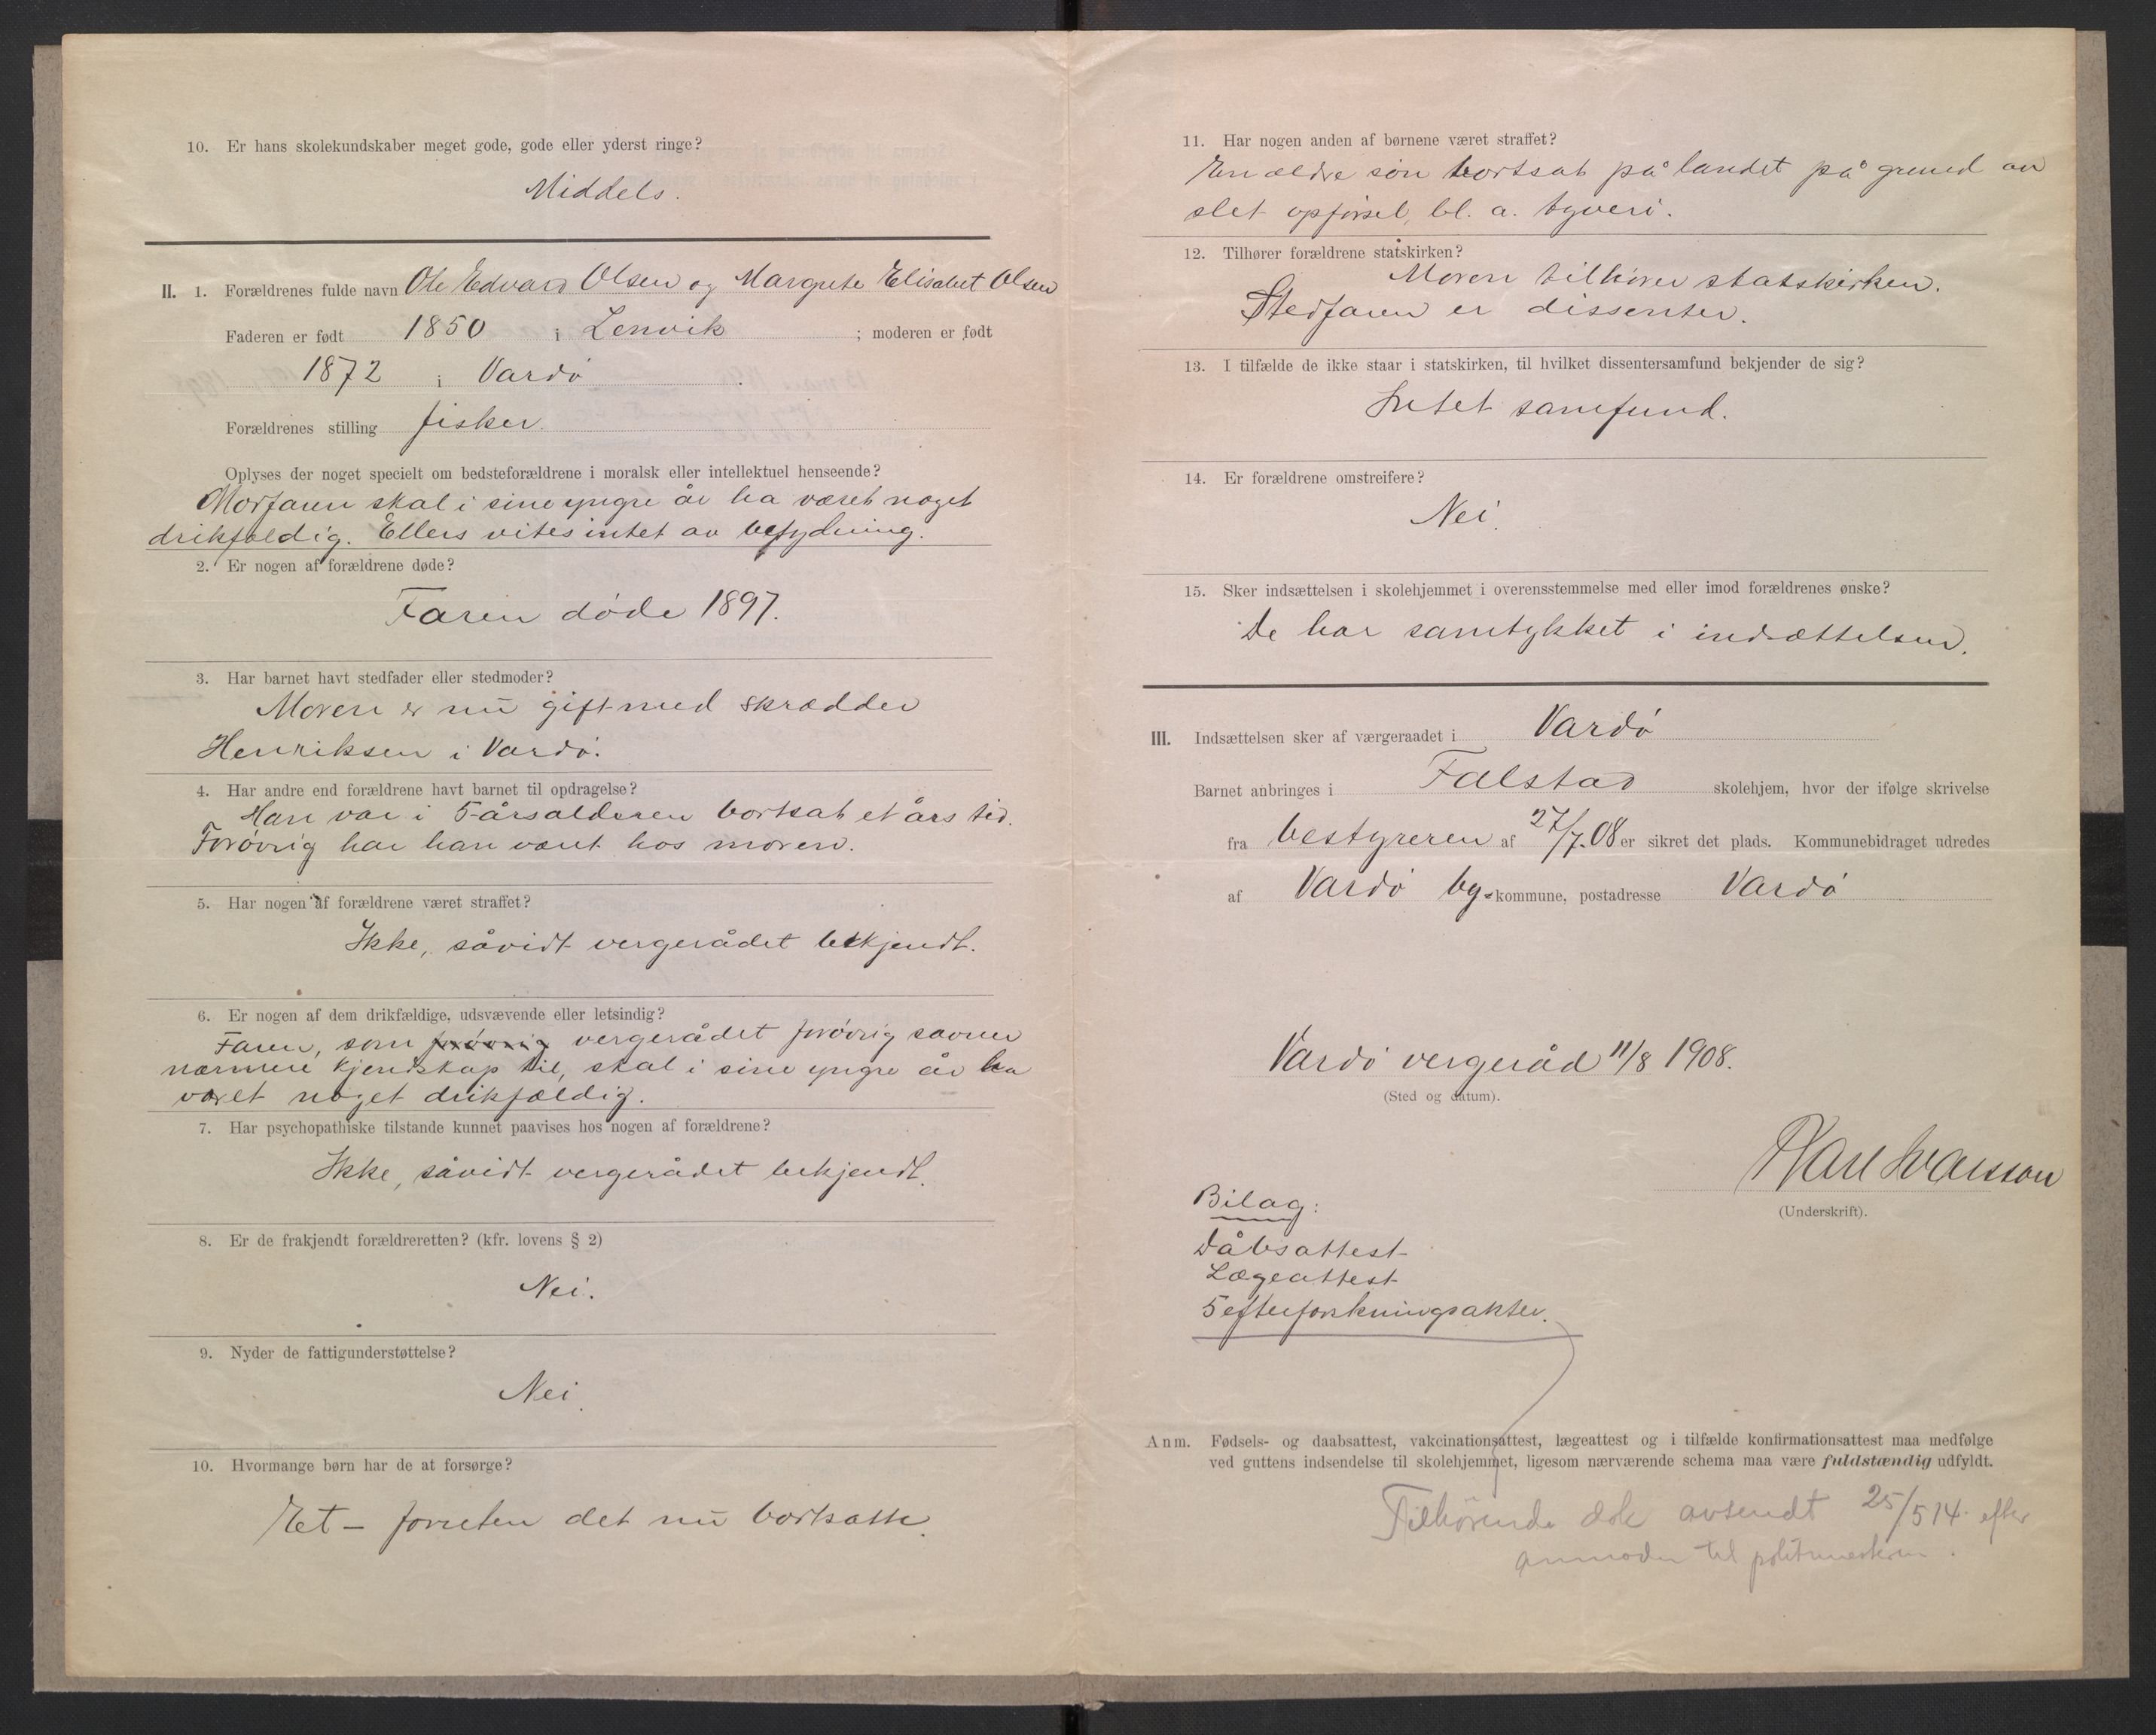 10. Er hans skolekundskaber meget gode, gode eller yderst ringe?
Middels.
II. 1. Forældrenes fulde navn Ole Edvard Olsen og Margrete Elisabet Olsen
Faderen er født 1850 i Lenvik ; moderen er født
1872 i Vardø .
Forældrenes stilling fisker
Oplyses der noget specielt om bedsteforældrene i moralsk eller intellektuel henseende?
Morfaren skal i sine yngre år ha været noget
drikfældig. Ellers vites intet av betydning.
2. Er nogen af forældrene døde?
Faren døde 1897.
3. Har barnet havt stedfader eller stedmoder?
Moren er nu gift med skrædder
Henriksen i Vardø.
4. Har andre end forældrene havt barnet til opdragelse?
Han var i 5-årsalderen bortsat et års tid.
Forøvrig har han været hos moren.
5. Har nogen af forældrene været straffet?
Ikke, såvidt vergerådet bekjendt.
6. Er nogen af dem drikfældige, udsvævende eller letsindig?
Faren, som forøvrig vergerådet forøvrig savner
nærmere kjendskap til, skal i sine yngre år ha
været noget drikfældig.
7. Har psychopathiske tilstande kunnet paavises hos nogen af forældrene?
Ikke, såvidt vergerådet bekjendt.
8. Er de frakjendt forældreretten? (kfr. lovens § 2)
Nei.
9. Nyder de fattigunderstøttelse?
Nei.
10. Hvormange børn har de at forsørge?
Et – foruten det nu bortsatte.
11. Har nogen anden af børnene været straffet?
En ældre søn bortsat på landet på grund av
slet opførsel, bl. a. tyveri.
12. Tilhører forældrene statskirken?
Moren tilhører statskirken.
Stedfaren er dissenter.
13. I tilfælde de ikke staar i statskirken, til hvilket dissentersamfund bekjender de sig?
Intet samfund.
14. Er forældrene omstreifere?
Nei.
15. Sker indsættelsen i skolehjemmet i overensstemmelse med eller imod forældrenes ønske?
De har samtykket i indsættelsen.
III. Indsættelsen sker af værgeraadet i Vardø
Barnet anbringes i Falstad skolehjem, hvor der ifølge skrivelse
fra bestyreren af 27/7.08 er sikret det plads. Kommunebidraget udredes
af Vardø by-kommune, postadresse Vardø
Vardø vergeråd 11/8 1908.
(Sted og datum).
Karl Ivarsson
(Underskrift).
Bilag:
Dåbsattest
Lægeattest
5 efterforskningsakter.
Anm. Fødsels- og daabsattest, vakcinationsattest, lægeattest og i tilfælde konfirmationsattest maa medfølge
ved guttens indsendelse til skolehjemmet, ligesom nærværende schema maa være fuldstændig udfyldt.
Tilhørende dok avsendt 25/5 14. efter
anmodn til politimesteren.